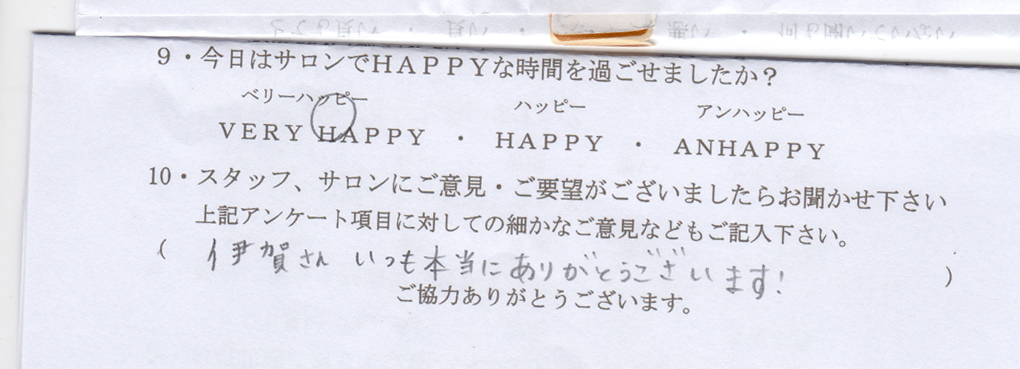 9・今日はサロンでHAPPYな時間を過ごせましたか?
ベリーハッピー ハッピー アンハッピー
VERY HAPPY ・ HAPPY ・ ANHAPPY
10・スタッフ、サロンにご意見・ご要望がございましたらお聞かせ下さい
上記アンケート項目に対しての細かなご意見などもご記入下さい。
( 伊賀さん いつも本当にありがとうございます! )
ご協力ありがとうございます。